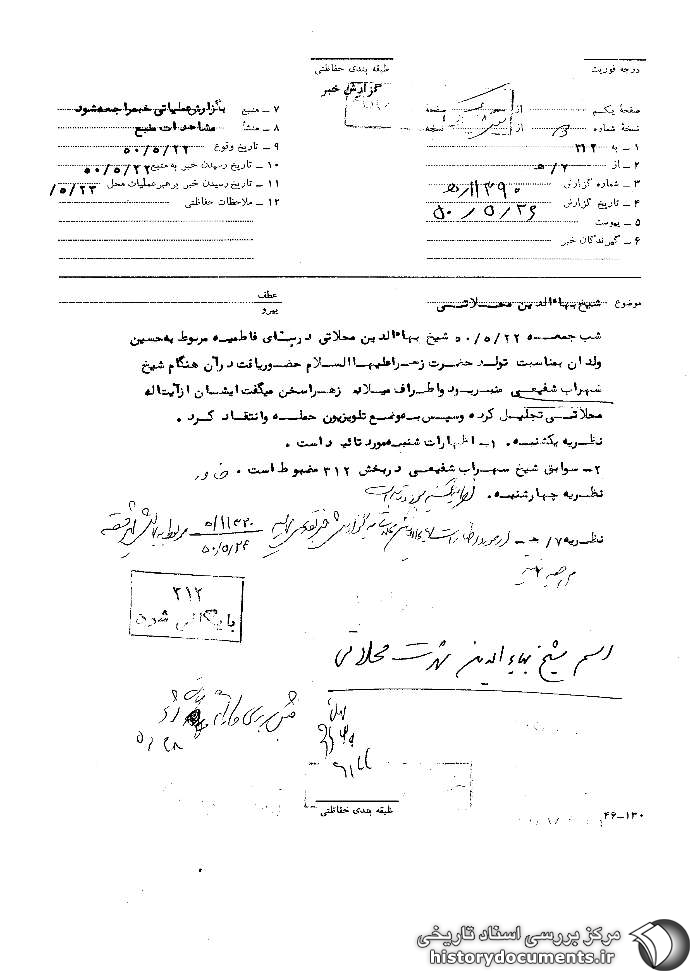 درجه فوریت
طبقه بندی حفاظتی
گزارش خبر
صفحه یکم از صفحه
نسخه شماره ۳ از نسخه
۱ ـ به ۳۱۲
۲ ـ از ۷/ه
۳ ـ شماره گزارش ۱۱۳۹۰/ه
۴ ـ تاریخ گزارش ۵۰/۵/۲۶
۵ ـ پیوست
۶ ـ گیرندگان خبر
۷ ـ منبع بگزارش عملیاتی خبر مراجعه شود
۸ ـ منشأ مشاهدات منبع
۹ ـ تاریخ وقوع ۵۰/۵/۲۲
۱۰ ـ تاریخ رسیدن خبر به منبع ۵۰/۵/۲۲
۱۱ ـ تاریخ رسیدن خبر برهبر عملیات محل /۵/۲۳
۱۲ ـ ملاحظات حفاظتی
موضوع شیخ بهاءالدین محلاتی
عطف
پیرو
شب جمعه ۵۰/۵/۲۲ شیخ بهاءالدین محلاتی در بنای فاطمیه مربوط به حسین
ولدان بمناسبت تولد حضرت زهرا علیها السلام حضور یافت در آن هنگام شیخ
سهراب شفیعی منبر بود و اطراف میلاد زهرا سخن میگفت ایشان از آیت اله
محلاتی تجلیل کرده و سپس به وضع تلویزیون حمله و انتقاد کرد .
نظریه یکشنبه . ۱ـ اظهارات شنبه مورد تائید است .
۲ـ سوابق شیخ سهراب شفیعی در بخش ۳۱۲ مضبوط است . خاور
نظریه چهارشنبه .
نظریه ۷/ه ـ
۵۰/۵/۲۶
۳۱۲
بایگانی شود
اسم شیخ بهاءالدین شهرت محلاتی
۵/۲۸
طبقه بندی حفاظتی
۱۳۰ـ۴۶
مرکز بررسی اسناد تاریخی
historydocuments.ir